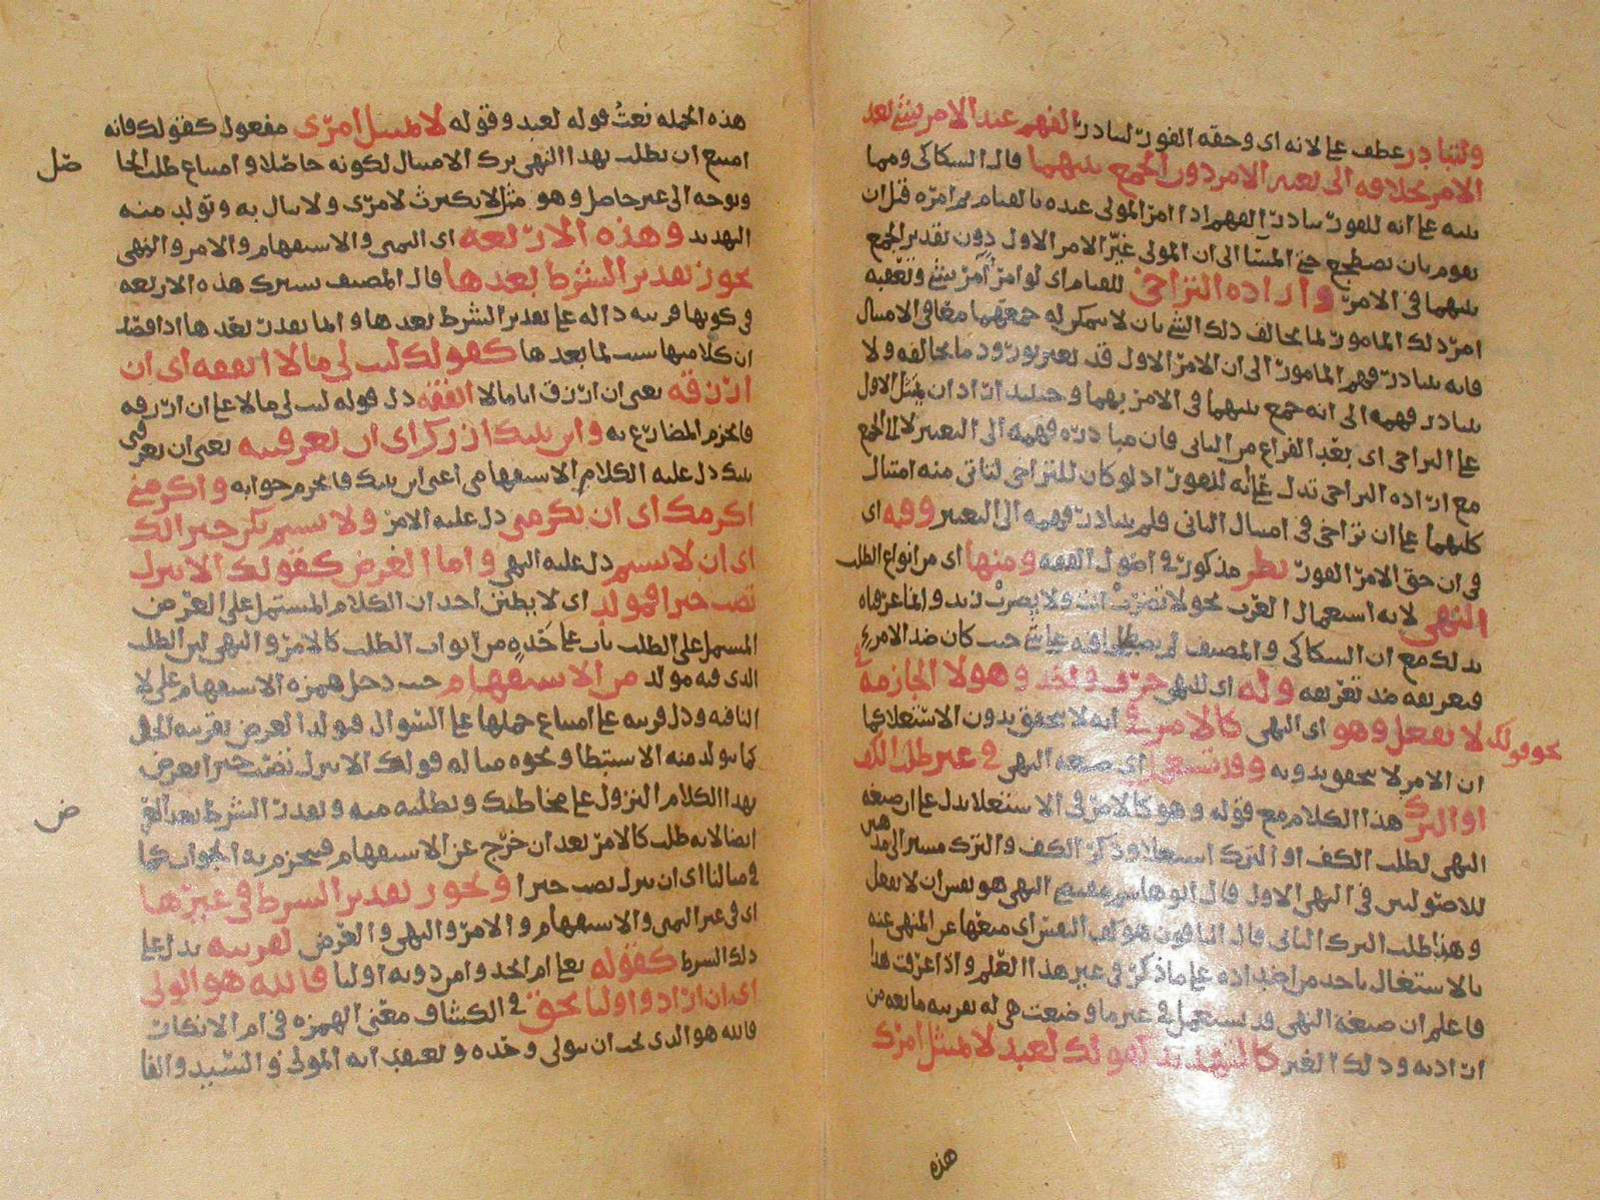 ولتبادر عطف على لانه اى وحقه الفور لتبادر الفهم عند الامر بشئ بعد
الامر بخلافه الى تغيير الامر دون الجمع بينهما قال السكاكى ومما
ينبه على انه للفور تبادر الفهم اذا امر المولى عبده بالقيام ثم امره قبل ان
يقوم بان يضطجع حتى المسا الى ان المولى غير الامر الاول دون تقدير الجمع
بينهما فى الامر واراده التراخى للقيام اى لو امر آمر بشئ وتعقبه
امر ذلك المامور لما يخالف ذلك الشئ بان لا يمكن له جمعهما معا فى الامتثال
فانه يتبادر فهم المامور الى ان الامر الاول قد تغير بورود ما يخالفه ولا
يتبادر فهمه الى انه جمع بينهما فى الامر بهما وحينئذ اراد ان يمتثل الاول
على التراخى اى بعد الفراغ من الثانى فان مبادره فهمه الى التغيير لا الى الجمع
مع اراده التراخى تدل على انه للفور اذ لو كان للتراخى لتاتى منه امتثال
كليهما على ان تراخى فى امتثال الثانى فلم يتبادر فهمه الى التغيير وفيه اى
فى ان حق الامر الفور نظر مذكور فى اصول الفقه ومنها اى من انواع الطلب
النهى لانه استعمال العرب نحو لا تضرب انت ولا يضرب زيد وانما عرفناه
بذلك مع ان السكاكى والمصنف لم حيث كان ضد الامر
فتعريفه ضد تعريفه وله اى للنهى حرف واحد وهو لا الجازمة فى
نحو قولك لا تفعل وهو اى النهى كالامر فى انه لا يتحقق بدون الاستعلا كما
ان الامر لا يتحقق بدونه وقد يستعمل اى صيغه النهى فى غير طلب الكف
او الترك هذا الكلام مع قوله وهو كالامر فى الاستعلا يدل على ان صيغه
النهى لطلب الكف او الترك استعلا وذكر الكف والترك مسير الى مذهبين
للاصوليين فى النهى الاول قال ابو هاشم النهى هو نفس ان لا تفعل
وهذا طلب الترك الثانى قال الباقون هو كف النفس اى منعها عن المنهى عنه
بالاشتغال باحد من اضداده على ما ذكر فى غير هذا العلم واذا عرفت هذا
فاعلم ان صيغة النهى قد تستعمل فى غير ما وضعت هى له بقرينه مانعه من
اراديه وذلك الغير كالتهديد كقولك لعبد لا يمتثل امرك
هذه
هذه الجمله نعت قوله لعبد وقوله لا تمتثل امرى مفعول كقولك فانه
امتنع ان يطلب بهذا النهى ترك الامتثال لكونه حاصلا وامتناع طلب الحا
صل
وتوجه الى غير حاصل وهو مثل لا تكترث لامرى ولا تبال به وتولد منه
التهديد وهذه الاربعه اى التمنى والاستفهام والامر والنهى
يجوز تقدير الشرط بعدها قال المصنف سترك هذه الاربعه
فى كونها قرينه داله على تقدير الشرط بعدها وانما يقدر بعدها اذا قصد
ان كلا منها سبب لما بعدها كقولك ليت لى مالا انفقه اى ان
ارزقه يعنى ان ارزق انا مالا انفقه دل قوله ليت لى مالا على ان ارزقه
فانجزم المضارع به واين بيتك ازرك اى ان تعرفنيه يعنى ان تعرفنى
بيتك دل عليه الكلام الاستفهامى اعنى اين بيتك فانجزم جوابه واكرمنى
اكرمك اى ان تكرمنى دل عليه الامر ولا تشتم يكن خيرا لك
اى ان لا تشتم دل عليه النهى واما العرض كقولك الا تنزل
تصب خيرا فمولد اى لا يظنن احد ان الكلام المشتمل على العرض
المشتمل على الطلب باب على حده من ابواب الطلب كالامر والنهى لان الطلب
الذى فيه مولد من الاستفهام حيث دخل همزه الاستفهام على لا
النافيه ودل قرينه على امتناع حملها على السوال فتولد العرض بقرينه الحال
كما تولد منه الاستبطا ونحوه مثاله قولك الا تنزل تصب خيرا تعرض
بهذا الكلام النزول على مخاطبك وتطلبه منه وتقدر الشرط بعد العر
ض
ايضا لانه طلب كالامر بعد ان خرج عن الاستفهام فينجزم به الجواب كما
فى مثالنا اى ان تنزل تصب خيرا ويجوز تقدير الشرط فى غيرها
اى فى غير التمنى والاستفهام والامر والنهى والعرض لقرينه يدل على
ذلك الشرط كقوله تعا ام اتخذوا من دونه اوليا فالله هو الولى
اى ان ارادوا اوليا بحق فى الكشاف معنى الهمزه فى ام الانكار
فالله هو الذى يجب ان يتولى وحده وتعتقد انه المولى والسيد والفا